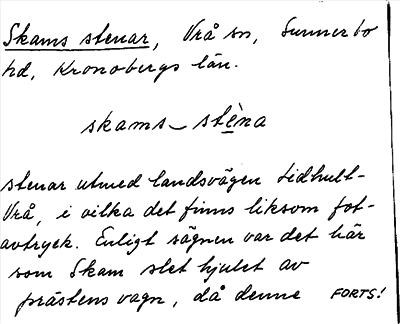 Skams stenar, Vrå sn, Sunnerbo
hd, Kronobergs län.
skams_stèna
stenar utmed landsvägen Lidhult-
Vrå, i vilka det finns liksom fot-
avtryck. Enligt sägnen var det här
som Skam slet hjulet av
prästens vagn, då denne FORTS!